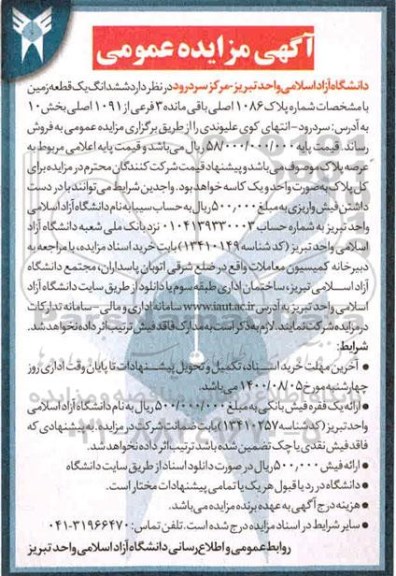 آگهی مزایده عمومی
دانشگاه آزاد اسلامی واحد تبریز-مرکز سردرود در نظر دارد ششدانگ یک قطعه زمین
با مشخصات شماره پلاک ۱۰۸۶ اصلی باقی مانده ۳ فرعی از ۱۰۹۱ اصلی بخش ۱۰
به آدرس: سردرود-انتهای کوی علیوندی را از طریق برگزاری مزایده عمومی به فروش
رساند. قیمت پایه ۵۸/۰۰۰/۰۰۰/۰۰۰ ریال می باشد و قیمت پایه اعلامی مربوط به
عرصه پلاک موصرف می باشد و پیشنهاد قیمت شرکت کنندگان محترم در مزایده برای
کل پلاک به صورت واحد و یک کاسه خواهد بود. واجدین شرایط می توانند با در دست
داشتن فیش واریزی به مبلغ ۵۰۰,۰۰۰ ریال به حساب سیبا به نام دانشگاه آزاد اسلامی
واحد تبریز به شماره حساب ۰۱۰۴۱۳۹۳۳۰۰۰۳ نزد بانک ملی شعبه دانشگاه آزاد
اسلامی واحد تبریز (کد شناسه ۱۳۴۱۰۱۴۹) بابت خرید اسناد مزایده، با مراجعه به
دبیرخانه کمیسیون معاملات واقع در ضلع شرقی اتوبان پاسداران، مجتمع دانشگاه
آزاد اسلامی تبریز، ساختمان اداری طبقه سوم یا دانلود از طریق سایت دانشگاه آزاد
اسلامی واحد تبریز به آدرس www.iaut.ac.ir سامانه اداری و مالی – سامانه تدارکات
در مزایده شرکت نمایند. لازم به ذکر است به مدارک فاقد فیش ترتیب اثر داده نخواهد شد.
شرایط:
● آخرین مهلت خرید اسناد، تکمیل و تحویل پیشنهادات تا پایان وقت اداری روز
چهارشنبه مورخ ۱۴۰۰/۰۸/۰۵ می باشد.
● ارائه یک فقره فیش بانکی به مبلغ ۵۰۰/۰۰۰/۰۰۰ ریال به نام دانشگاه آزاد اسلامی
واحد تبریز (کد شناسه ۱۳۴۱۰۲۵۷) بابت ضمانت شرکت در مزایده به پیشنهادی که
فاقد فیش نقدی یا چک تضمین شده باشد ترتیب اثر داده نخواهد شد.
● ارائه فیش ۵۰۰,۰۰۰ ریال در صورت دانلود اسناد از طریق سایت دانشگاه
● دانشگاه در رد یا قبول هر یک یا تمامی پیشنهادات مختار است.
● هزینه درج آگهی به عهده برنده مزایده می باشد.
● سایر شرایط در اسناد مزایده درج شده است. تلفن تماس: ۳۱۹۶۶۴۷۰-۰۴۱
روابط عمومی و اطلاع رسانی دانشگاه آزاد اسلامی واحد تبریز